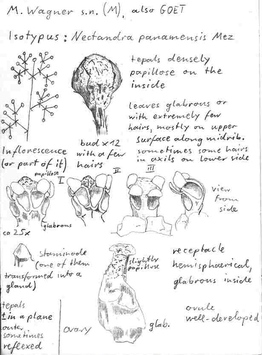 M. Wagner s.n. (M), also GOET
Isotypus: Nectandra panamensis Mez
tepals densely
papillose on the
inside
leaves glabrous or
with extremely few
hairs, mostly on upper
surface along midrib.
sometimes some hairs
in axils on lower side
Inflorescence
(or part of it)
bud x12
with a few
hairs
papillose
I
II
III
glabrous
view
from
side
ca 25x
staminode
(one of them
transformed into a
gland)
slightly
papillose
receptacle
hemisphaerical,
glabrous inside
tepals
± in a plane
outer
sometimes
reflexed
ovary
glab.
ovule
well-developed